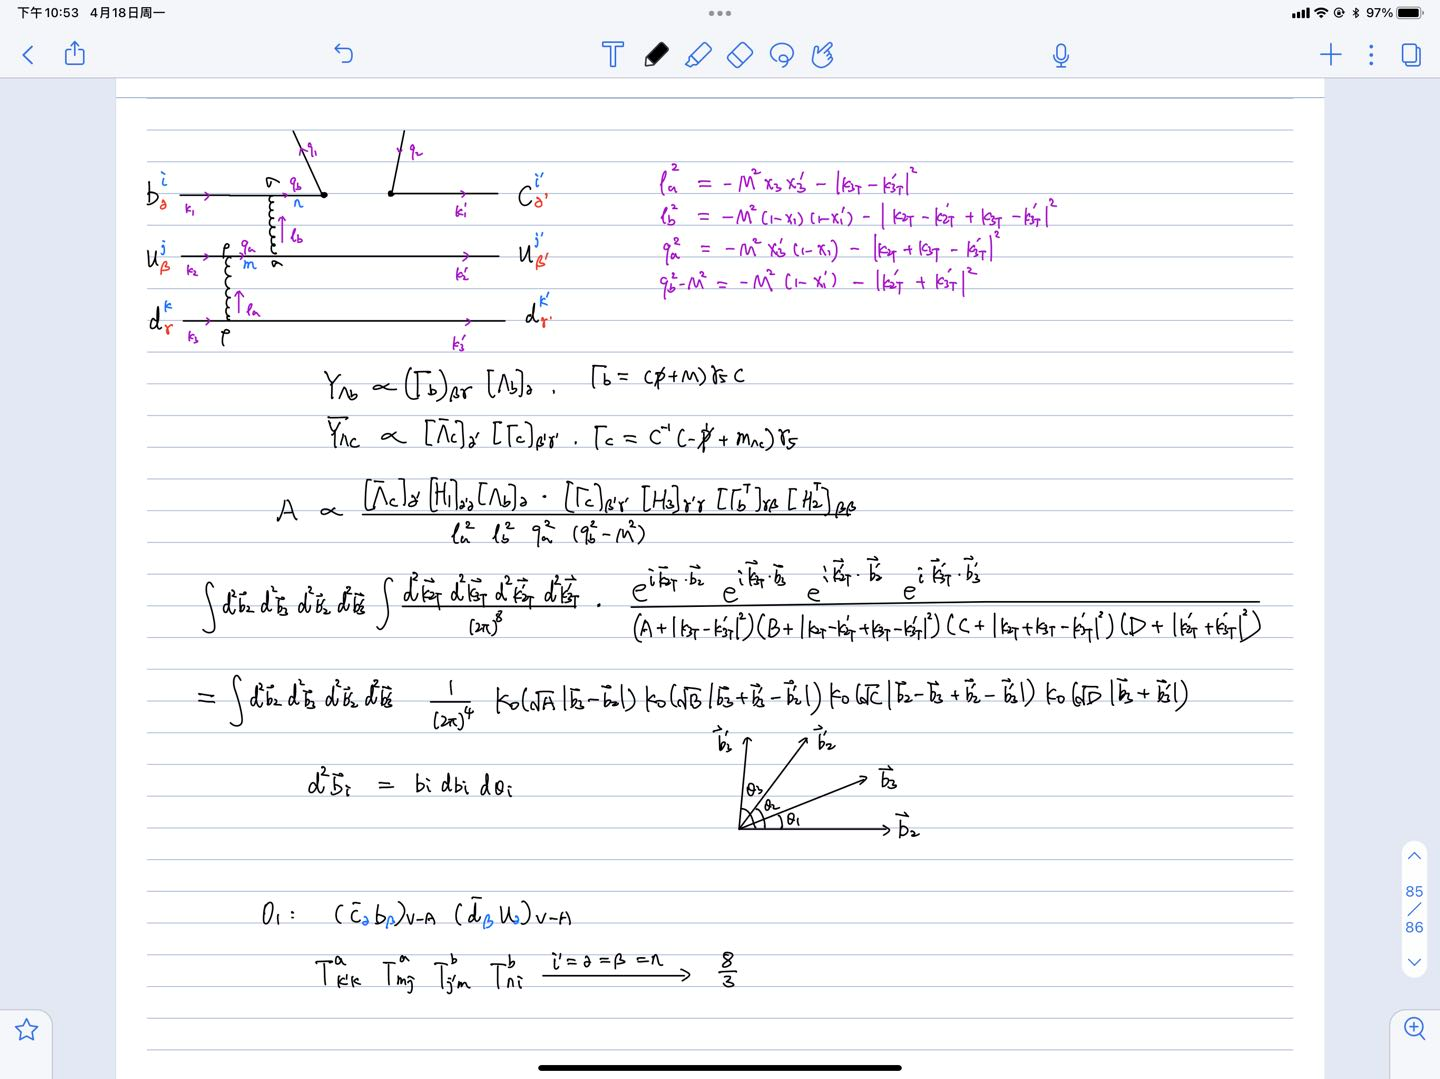 下午10:53 4月18日周一 97%
q₁ q₂
b_α^i k₁ σ q_b n k₁' C_α'^i'
l_b
u_β^j k₂ ρ q_a m σ k₂' u_β'^j'
l_a
d_γ^k k₃ ρ k₃' d_γ'^k'
l_a² = -M² x₃ x₃' - |k₃T - k₃T'|²
l_b² = -M² (1-x₁)(1-x₁') - |k₂T - k₂T' + k₃T - k₃T'|²
q_a² = -M² x₃' (1-x₁) - |k₂T + k₃T - k₃T'|²
q_b² - M² = -M² (1-x₁') - |k₂T' + k₃T'|²
Y_Λb ∝ (Γb)_βγ [Λb]_α . Γb = C(p̸+M)γ₅ C
Ȳ_Λc ∝ [Λ̄c]_α' [Γc]_β'γ' . Γc = C⁻¹(-p̸' + m_Λc)γ₅
A ∝ [Λ̄c]_α' [H₁]_α'α [Λb]_α · [Γc]_β'γ' [H₃]_γ'γ [Γb^T]_γβ [H₂^T]_ββ / l_a² l_b² q_a² (q_b² - M²)
∫ d²b⃗₂ d²b⃗₃ d²b⃗₂' d²b⃗₃' ∫ d²k⃗₂T d²k⃗₃T d²k⃗₂T' d²k⃗₃T' / (2π)⁸ · e^{i k⃗₂T·b⃗₂} e^{i k⃗₃T·b⃗₃} e^{i k⃗₂T'·b⃗₂'} e^{i k⃗₃T'·b⃗₃'} / (A+|k₃T-k₃T'|²)(B+|k₂T-k₂T'+k₃T-k₃T'|²)(C+|k₂T+k₃T-k₃T'|²)(D+|k₂T'+k₃T'|²)
= ∫ d²b⃗₂ d²b⃗₃ d²b⃗₂' d²b⃗₃' 1/(2π)⁴ K₀(√A |b⃗₃-b⃗₂|) K₀(√B |b⃗₃+b⃗₃'-b⃗₂'|) K₀(√C |b⃗₂-b⃗₃+b⃗₂'-b⃗₃'|) K₀(√D |b⃗₃+b⃗₃'|)
b⃗₃' b⃗₂'
d²b⃗i = bi dbi dθi θ₃ θ₂ θ₁ b⃗₃
b⃗₂
O₁ : (c̄_α b_β)_V-A (d̄_β u_α)_V-A
T^a_k'k T^a_mj T^b_j'm T^b_ni i'=α=β=n → 8/3
85
/
86